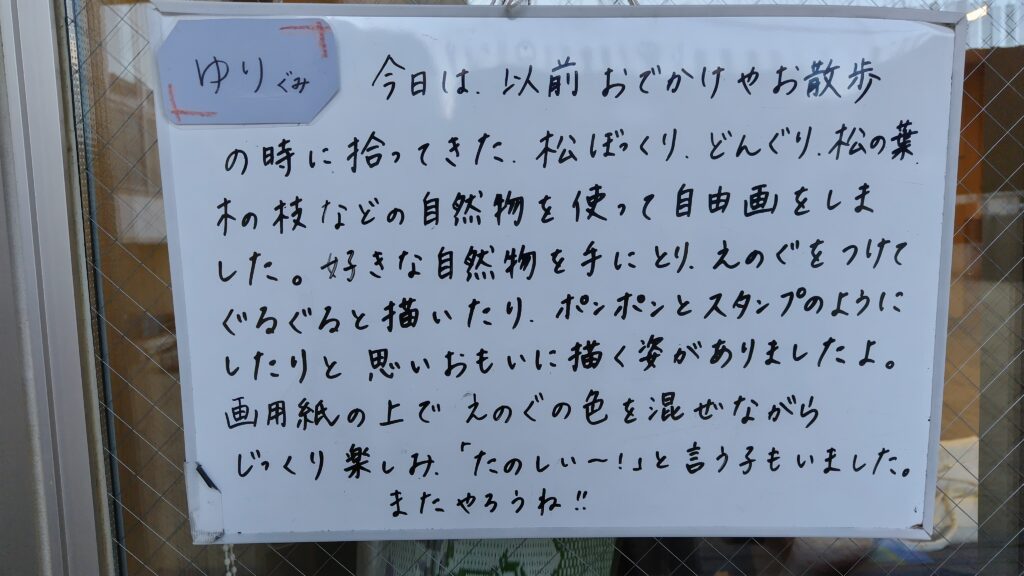 ゆりぐみ
今日は、以前おでかけやお散歩
の時に拾ってきた、松ぼっくり、どんぐり、松の葉
木の枝などの自然物を使って自由画をしま
した。好きな自然物を手にとり、えのぐをつけて
ぐるぐると描いたり、ポンポンとスタンプのように
したりと思いおもいに描く姿がありましたよ。
画用紙の上でえのぐの色を混ぜながら
じっくり楽しみ、「たのしぃ〜!」と言う子もいました。
またやろうね!!